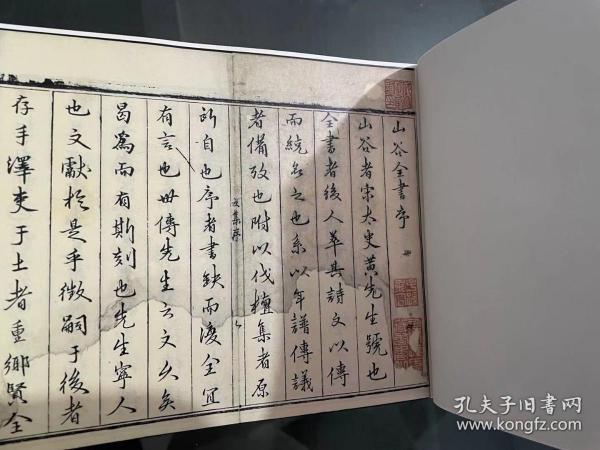 山谷全書序
山谷者宋太史黃先生號也
全書者後人萃其詩文以傳
而統名之也系以年譜傳議
者備攷也附以伐檀集者原
所自也序者書缺而復全宜
有言也世傳先生之文久矣
曷爲而有斯刻也先生寧人
也文獻於是乎徵嗣于後者
存手澤吏于土者重鄉賢全
文集序
孔夫子旧书网
www.kongfz.com